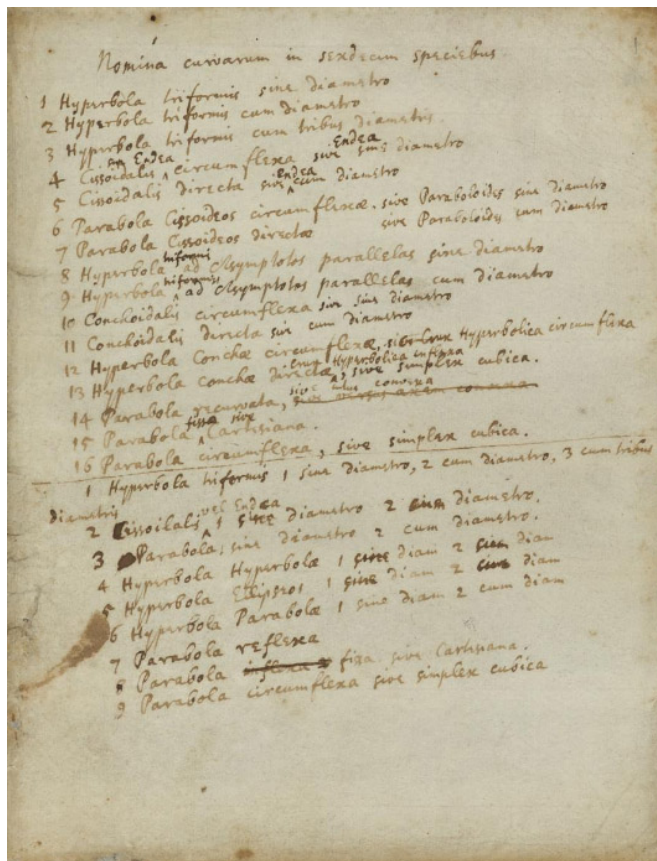 Nomina curvarum in sexdecim speciebus
1 Hyperbola triformis sine diametro
2 Hyperbola triformis cum diametro
3 Hyperbola triformis cum tribus diametris
4 Cissoidalis an Endea circumflexa sive Endea sine diametro
5 Cissoidalis directa sive Endea cum diametro
6 Parabola Cissoideos circumflexæ. sive Paraboloides sine diametro
7 Parabola Cissoideos directæ sive Paraboloides cum diametro
8 Hyperbola triformis ad Asymptotos parallelas sine diametro
9 Hyperbola triformis ad Asymptotos parallelas cum diametro
10 Conchoidalis circumflexa sive sine diametro
11 Conchoidalis directa sive cum diametro
12 Hyperbola Conchæ circumflexæ, sive Crux Hyperbolica circumflexa
13 Hyperbola conchæ directæ, Crux Hyperbolica sive simplex cubica.
14 Parabola recurvata, sive intus convexa sive versus axem convexa
15 Parabola fissa sive Cartisiana.
16 Parabola circumflexa, sive simplex cubica.
1 Hyperbola triformis 1 sine diametro, 2 cum diametro, 3 cum tribus
diametris
2 Cissoidalis vel Endea 1 sine diametro 2 cum diametro.
3 Parabola, sine diametro 2 cum diametro.
4 Hyperbola Hyperbolæ 1 sine diam 2 cum diam
5 Hyperbola Ellipseos 1 sine diam 2 cum diam
6 Hyperbola Parabolæ 1 sine diam 2 cum diam
7 Parabola reflexa
8 Parabola inflexa fissa sive Cartisiana.
9 Parabola circumflexa sive simplex cubica